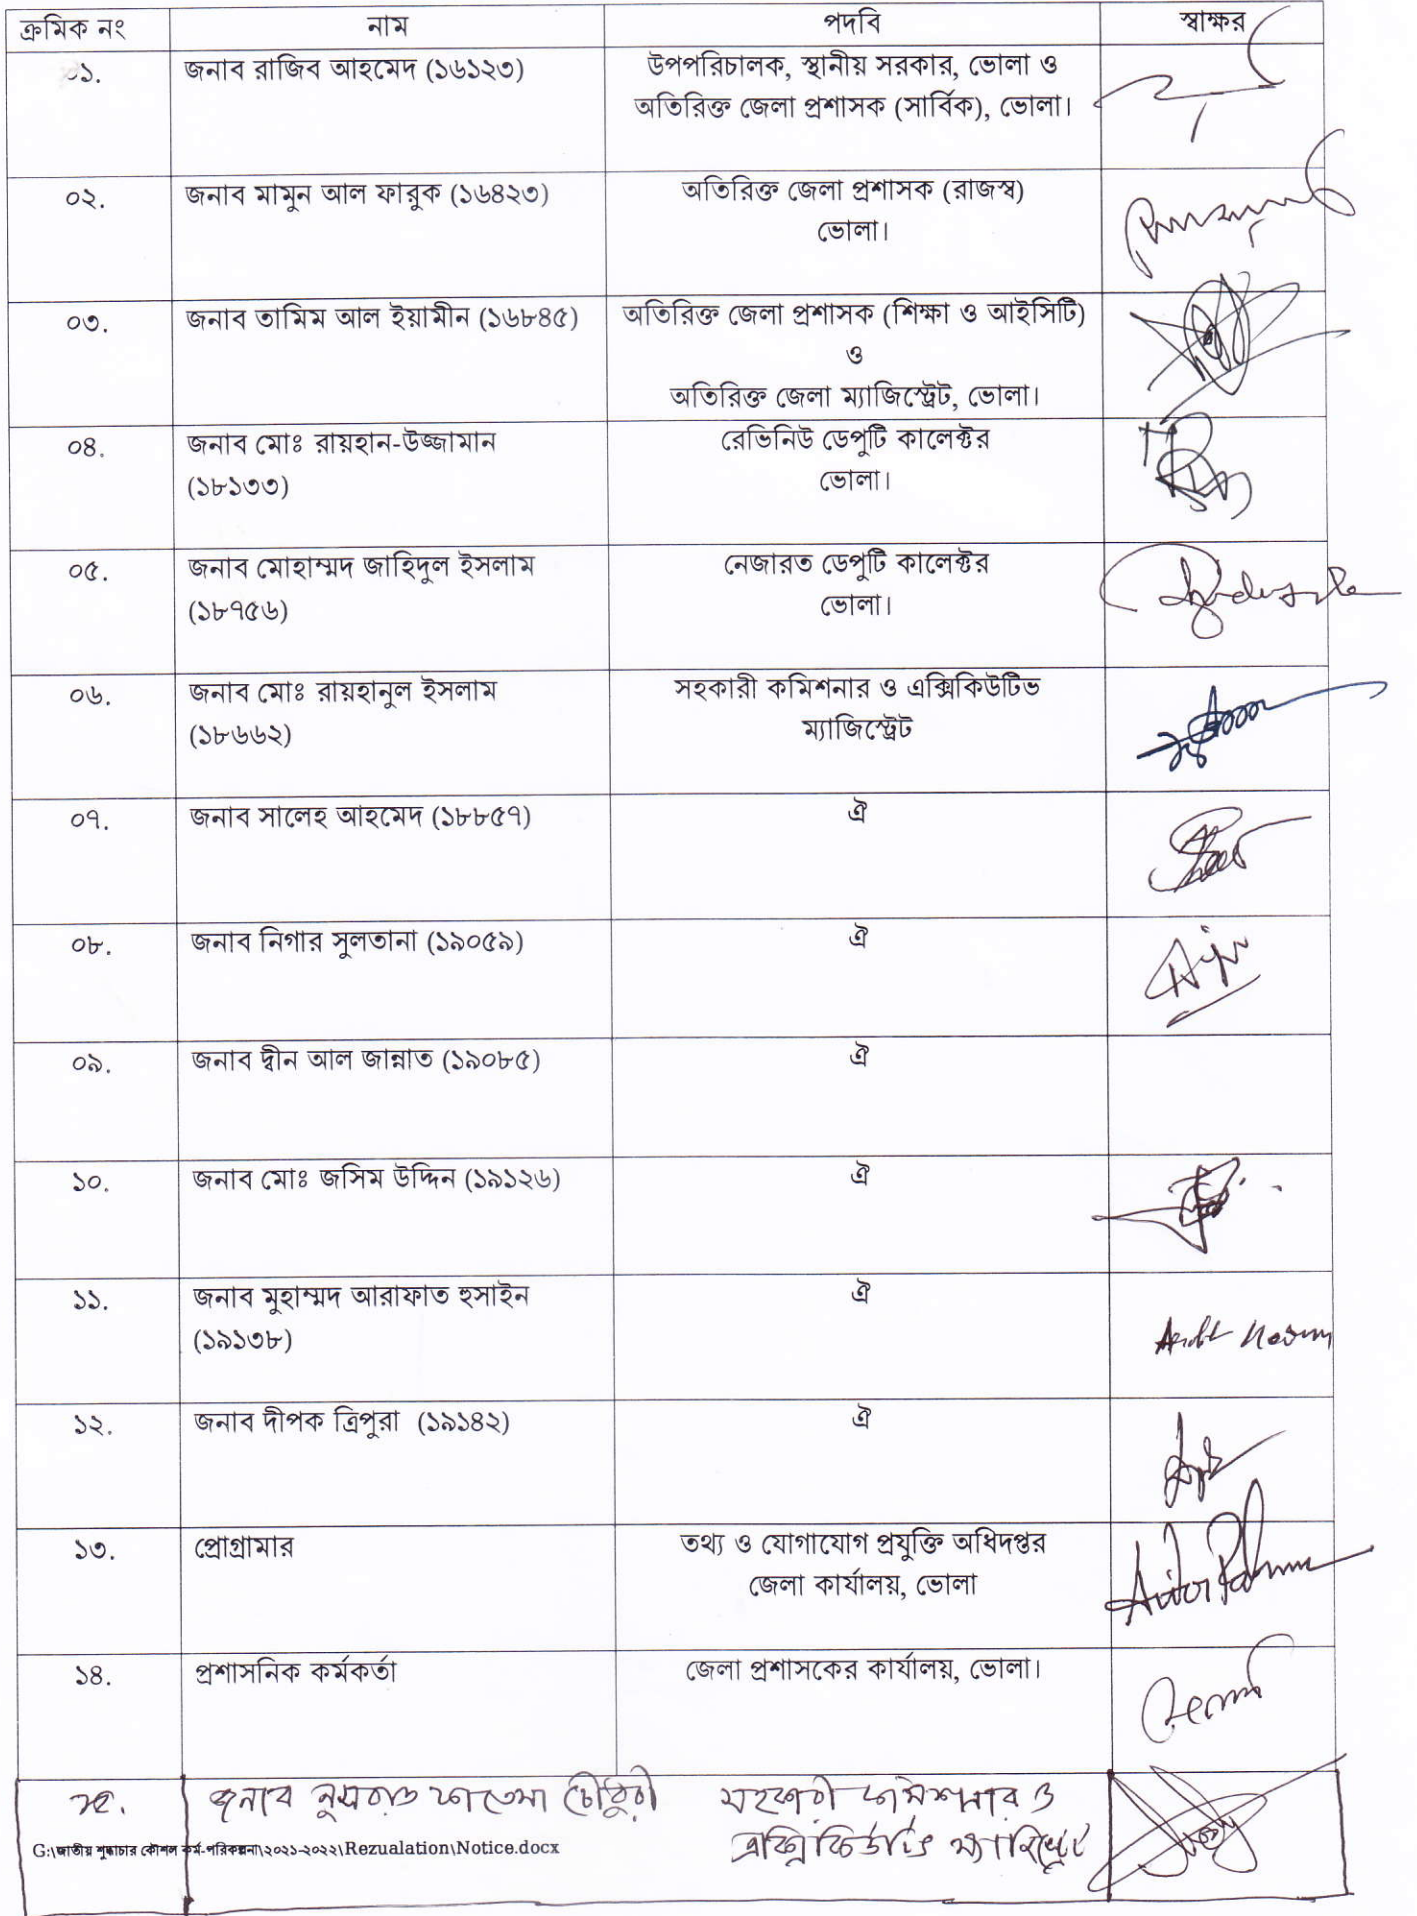 ক্রমিক নং নাম পদবি স্বাক্ষর
০১. জনাব রাজিব আহমেদ (১৬১২৩) উপপরিচালক, স্থানীয় সরকার, ভোলা ও
অতিরিক্ত জেলা প্রশাসক (সার্বিক), ভোলা।
০২. জনাব মামুন আল ফারুক (১৬৪২৩) অতিরিক্ত জেলা প্রশাসক (রাজস্ব)
ভোলা।
০৩. জনাব তামিম আল ইয়ামীন (১৬৮৪৫) অতিরিক্ত জেলা প্রশাসক (শিক্ষা ও আইসিটি)
ও
অতিরিক্ত জেলা ম্যাজিস্ট্রেট, ভোলা।
০৪. জনাব মোঃ রায়হান-উজ্জামান রেভিনিউ ডেপুটি কালেক্টর
(১৮১৩৩) ভোলা।
০৫. জনাব মোহাম্মদ জাহিদুল ইসলাম নেজারত ডেপুটি কালেক্টর
(১৮৭৫৬) ভোলা।
০৬. জনাব মোঃ রায়হানুল ইসলাম সহকারী কমিশনার ও এক্সিকিউটিভ
(১৮৬৬২) ম্যাজিস্ট্রেট
০৭. জনাব সালেহ আহমেদ (১৮৮৫৭) ঐ
০৮. জনাব নিগার সুলতানা (১৯০৫৯) ঐ
০৯. জনাব দ্বীন আল জান্নাত (১৯০৮৫) ঐ
১০. জনাব মোঃ জসিম উদ্দিন (১৯১২৬) ঐ
১১. জনাব মুহাম্মদ আরাফাত হুসাইন ঐ
(১৯১৩৮)
১২. জনাব দীপক ত্রিপুরা (১৯১৪২) ঐ
১৩. প্রোগ্রামার তথ্য ও যোগাযোগ প্রযুক্তি অধিদপ্তর
জেলা কার্যালয়, ভোলা
১৪. প্রশাসনিক কর্মকর্তা জেলা প্রশাসকের কার্যালয়, ভোলা।
১৫. জনাব নুসরাত ফাতেমা চৌধুরী সহকারী কমিশনার ও
এক্সিকিউটিভ ম্যাজিস্ট্রেট
G:\জাতীয় শুদ্ধাচার কৌশল কর্ম-পরিকল্পনা\২০২১-২০২২\Rezualation\Notice.docx